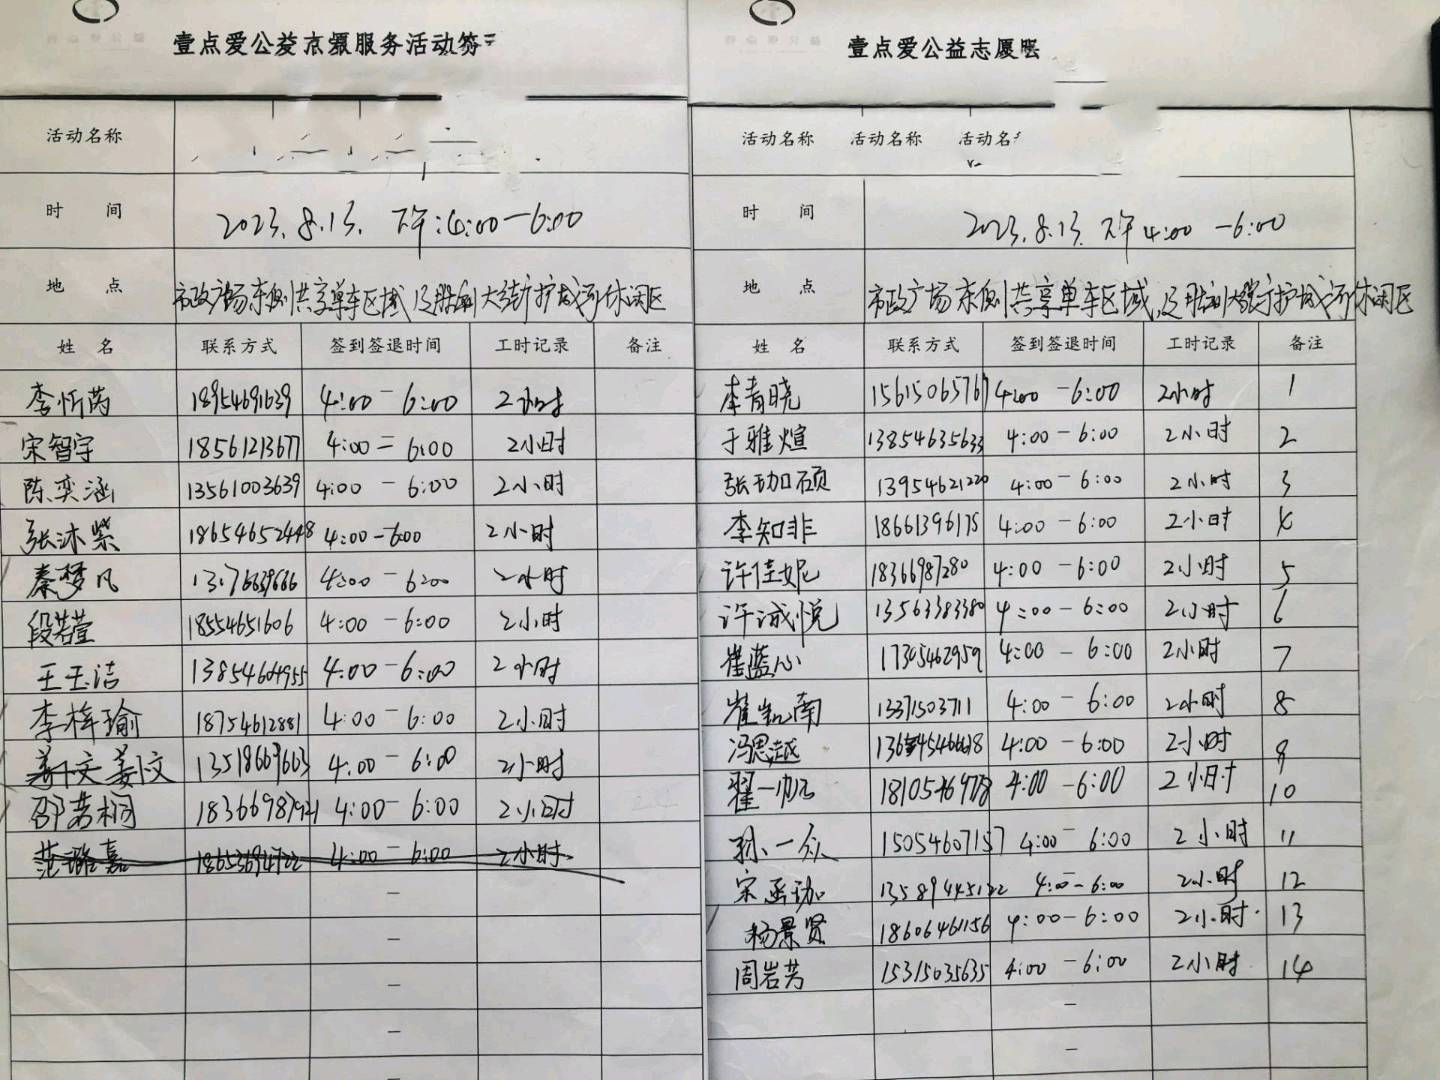 壹点爱公益志愿服务活动签
活动名称
时 间 2023.8.13. 下午:4:00-6:00
地 点 市政广场东侧共享单车区域及胜利大街护城河休闲区
姓 名 联系方式 签到签退时间 工时记录 备注
李忻芮 18954691639 4:00-6:00 2小时
宋智宇 18561213677 4:00=6:00 2小时
陈奕涵 13561003639 4:00-6:00 2小时
张沐紫 18654652448 4:00-6:00 2小时
秦梦凡 4:00-6:00 2小时
段若萱 18554651606 4:00-6:00 2小时
王玉洁 13854604955 4:00-6:00 2小时
李梓瑜 18754612881 4:00-6:00 2小时
13518669663 4:00-6:00 2小时
邵若桐 18366987921 4:00-6:00 2小时
范璐嘉 4:00-6:00 2小时
壹点爱公益志愿服
活动名称 活动名称 活动名
时 间 2023.8.13. 下午4:00-6:00
地 点 市政广场东侧共享单车区域,及胜利大街护城河休闲区
姓 名 联系方式 签到签退时间 工时记录 备注
李青晓 15615065767 4:00-6:00 2小时 1
于雅煊 13854635633 4:00-6:00 2小时 2
张珈硕 13954621220 4:00-6:00 2小时 3
李知非 18661396175 4:00-6:00 2小时 4
许佳妮 18366987280 4:00-6:00 2小时 5
许诚悦 13563383380 4:00-6:00 2小时 6
崔蓝心 17305462959 4:00-6:00 2小时 7
崔凯南 13371503711 4:00-6:00 2小时 8
冯思越 4:00-6:00 2小时 9
翟一帆 18105469778 4:00-6:00 2小时 10
孙一众 15054607157 4:00-6:00 2小时 11
宋丞珈 13589445122 4:00-6:00 2小时 12
杨景贤 18606461156 4:00-6:00 2小时. 13
周岩芳 15315035635 4:00-6:00 2小时. 14